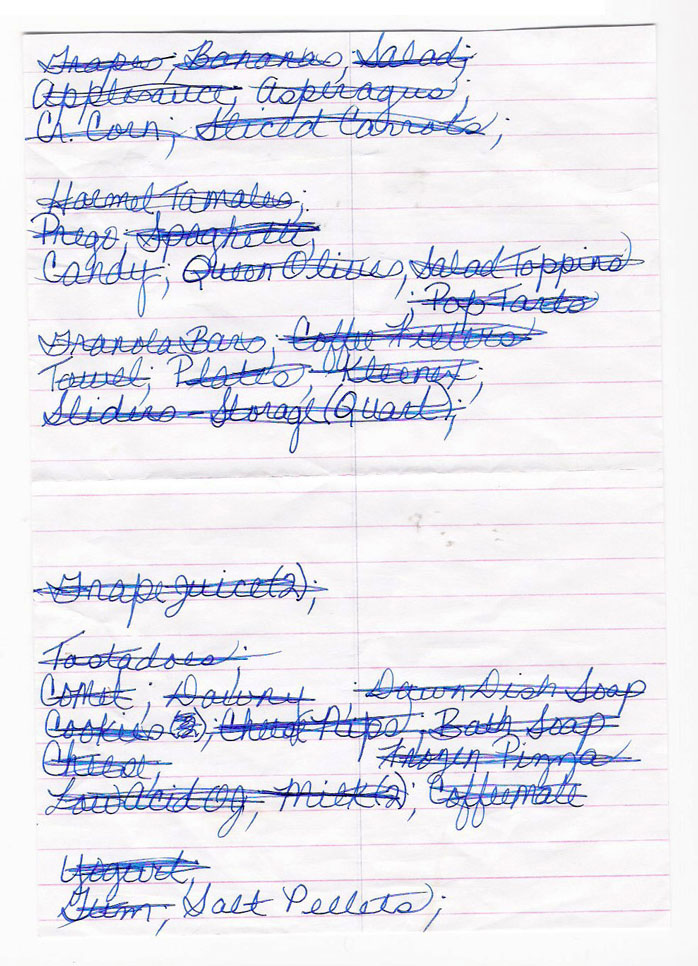 Grapes; Bananas, Salad;
Applesauce; Asperagus;
Ch. Corn; Sliced Carrots;
Hormel Tamales;
Prego, Spaghetti,
Candy; Queen Olives, Salad Topping
; Pop Tarts
Granola Bars, Coffee Filters
Towel; Plates, Kleenex;
Sliders - Storage (Quart);
Grape Juice (2);
Tostadoes;
Comet; Downy Dawn Dish Soap
Cookies (2); Cheese Nips; Bath Soap
Cheese, Frozen Pizza
Low Acid OJ, Milk (2); Coffeemate
Yogurt,
Gum, Salt Pellets;